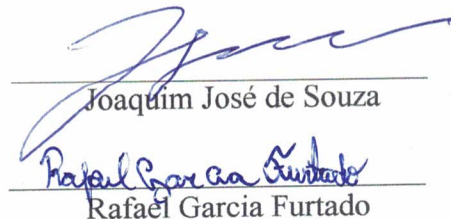 Joaquim José de Souza
Rafael Garcia Furtado
Rafael Garcia Furtado